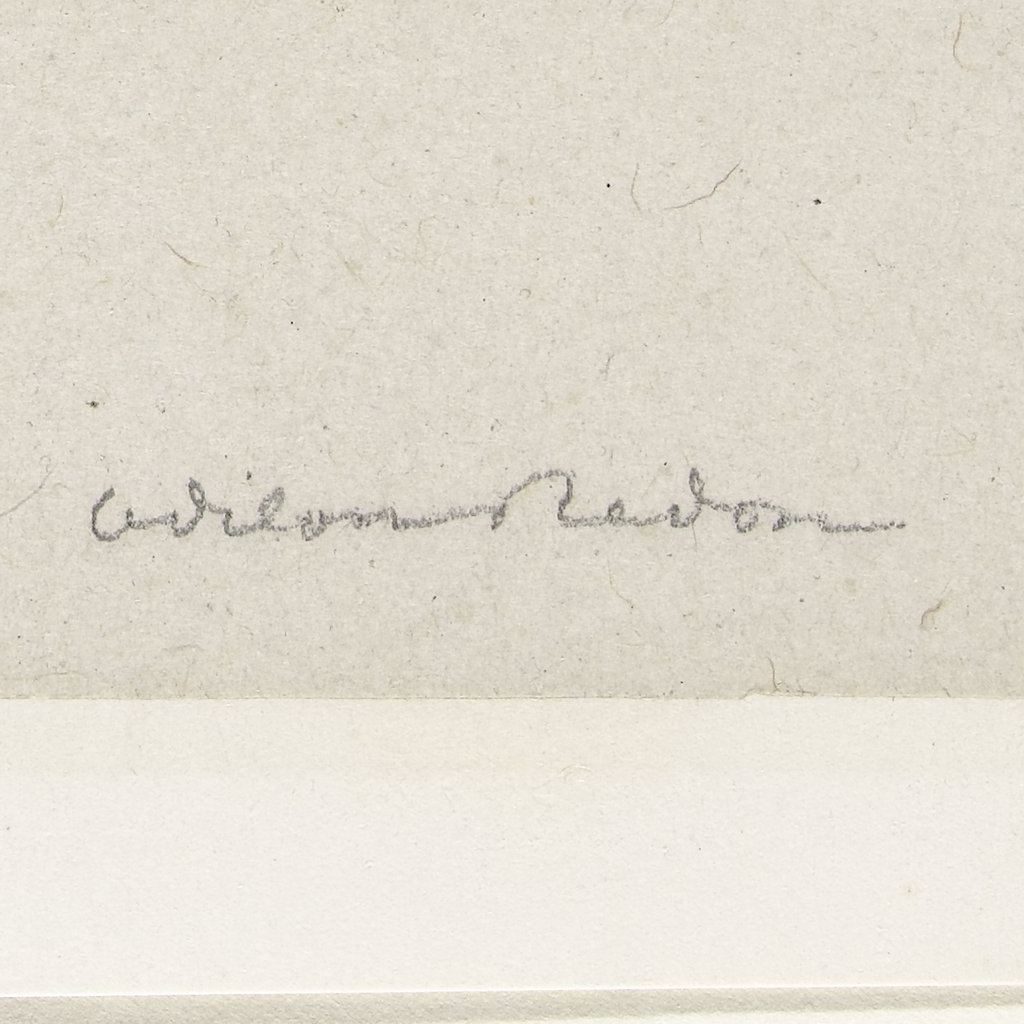 Odilon Redon